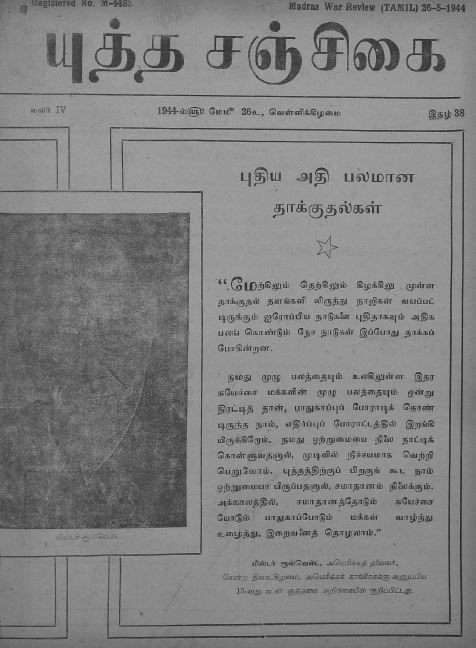 Registered No. M-4483
Madras War Review (TAMIL) 26-5-1944
யுத்த சஞ்சிகை
மலர் IV
1944-ம்௵ மேமீ 26உ, வெள்ளிக்கிழமை
இதழ் 38
புதிய அதி பலமான
தாக்குதல்கள்
“மேற்கிலும் தெற்கிலும் கிழக்கிலு முள்ள
தாக்குதல் தளங்களி லிருந்து நாஜிகள் வயப்பட்
டிருக்கும் ஐரோப்பிய நாடுகளை புதிதாகவும் அதிக
பலங் கொண்டும் நேச நாடுகள் இப்போது தாக்கப்
போகின்றன.
நமது முழு பலத்தையும் உலகிலுள்ள இதர
சுயேச்சை மக்களின் முழு பலத்தையும் ஒன்று
திரட்டித் தான், பாதுகாப்புப் போராடிக் கொண்
டிருந்த நாம், எதிர்ப்புப் போராட்டத்தில் இறங்கி
யிருக்கிறோம். நமது ஒற்றுமையை நிலை நாட்டிக்
கொள்ளுவதனால், முடிவில் நிச்சயமாக வெற்றி
பெறுவோம். யுத்தத்திற்குப் பிறகுங் கூட நாம்
ஒற்றுமையா யிருப்பதனால், சமாதானம் நிலைக்கும்.
அக்காலத்தில், சமாதானத்தோடும் சுயேச்சை
யோடும் பாதுகாப்போடும் மக்கள் வாழ்ந்து
உழைத்து, இறைவனைத் தொழலாம்.”
மிஸ்டர் ரூஸ்வெல்ட்.
மிஸ்டர் ரூஸ்வெல்ட், அமெரிக்கத் தலைவர்,
சென்ற திங்கட்கிழமை, அமெரிக்கக் காங்கிரசுக்கு அனுப்பிய
15-வது கடன் குத்தகை அறிக்கையில் குறிப்பிட்டது.